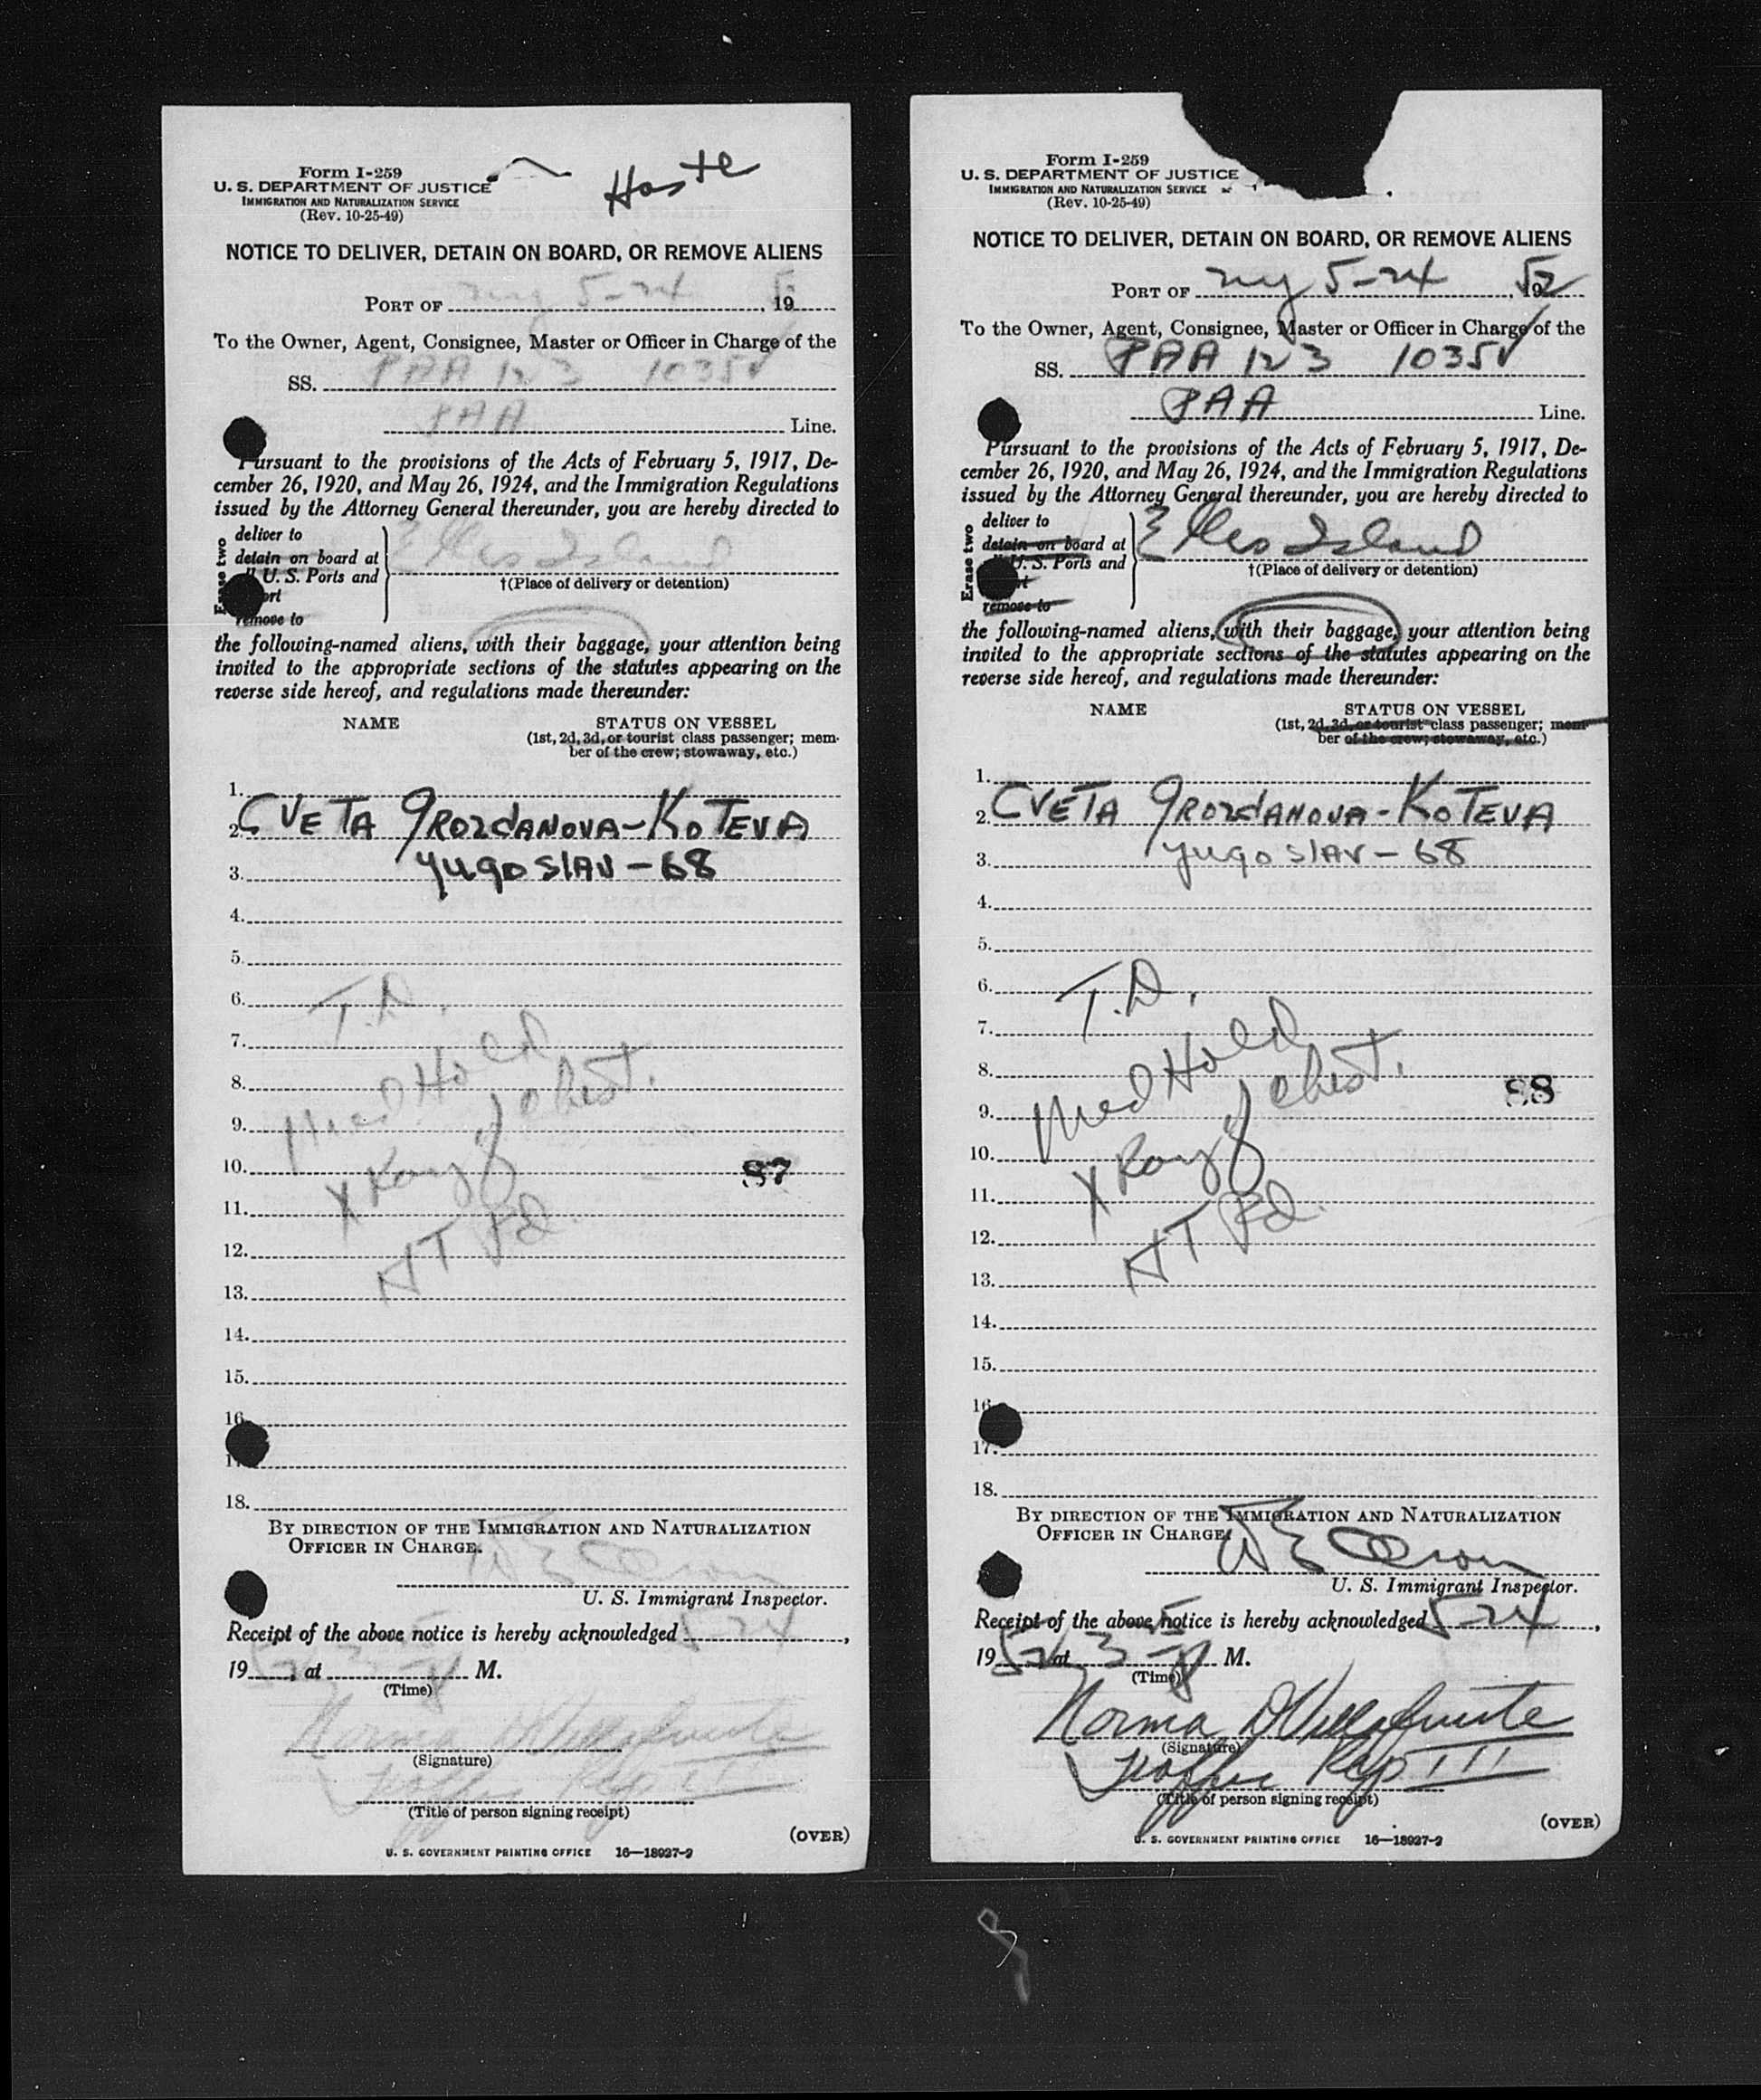 Form I-259
U. S. DEPARTMENT OF JUSTICE
IMMIGRATION AND NATURALIZATION SERVICE
(Rev. 10-25-49)
Haste
NOTICE TO DELIVER, DETAIN ON BOARD, OR REMOVE ALIENS
PORT OF ny 5-24, 195
To the Owner, Agent, Consignee, Master or Officer in Charge of the
SS. PAA 123 1035
PAA Line.
Pursuant to the provisions of the Acts of February 5, 1917, De-
cember 26, 1920, and May 26, 1924, and the Immigration Regulations
issued by the Attorney General thereunder, you are hereby directed to
Erase two
deliver to
detain on board at
U. S. Ports and
remove to
Ellis Island
†(Place of delivery or detention)
the following-named aliens, with their baggage, your attention being
invited to the appropriate sections of the statutes appearing on the
reverse side hereof, and regulations made thereunder:
NAME STATUS ON VESSEL
(1st, 2d, 3d, or tourist class passenger; mem-
ber of the crew; stowaway, etc.)
1.
2. CVETA GROZDANOVA-KOTEVA
3. YUGOSLAV-68
4.
5.
6. T.D.
7.
8. Med Hold
9. X Ray of chest.
10. 87
11.
12.
13.
14.
15.
16.
17.
18.
BY DIRECTION OF THE IMMIGRATION AND NATURALIZATION
OFFICER IN CHARGE.
U. S. Immigrant Inspector.
Receipt of the above notice is hereby acknowledged 5-24,
1952, at M.
(Time)
Norma
(Signature)
Traffic Rep III
(Title of person signing receipt)
(OVER)
U. S. GOVERNMENT PRINTING OFFICE 16—18927-2
Form I-259
U. S. DEPARTMENT OF JUSTICE
IMMIGRATION AND NATURALIZATION SERVICE
(Rev. 10-25-49)
NOTICE TO DELIVER, DETAIN ON BOARD, OR REMOVE ALIENS
PORT OF ny 5-24, 52
To the Owner, Agent, Consignee, Master or Officer in Charge of the
SS. PAA 123 1035
PAA Line.
Pursuant to the provisions of the Acts of February 5, 1917, De-
cember 26, 1920, and May 26, 1924, and the Immigration Regulations
issued by the Attorney General thereunder, you are hereby directed to
Erase two
deliver to
detain on board at
U. S. Ports and
remove to
Ellis Island
†(Place of delivery or detention)
the following-named aliens, with their baggage, your attention being
invited to the appropriate sections of the statutes appearing on the
reverse side hereof, and regulations made thereunder:
NAME STATUS ON VESSEL
(1st, 2d, 3d, or tourist class passenger; mem-
ber of the crew; stowaway, etc.)
1.
2. CVETA GROZDANOVA-KOTEVA
3. YUGOSLAV-68
4.
5.
6. T.D.
7.
8. Med Hold
88
9. X Ray of chest.
10.
11.
12.
13.
14.
15.
16.
17.
18.
BY DIRECTION OF THE IMMIGRATION AND NATURALIZATION
OFFICER IN CHARGE.
U. S. Immigrant Inspector.
Receipt of the above notice is hereby acknowledged 5-24,
1952, at M.
(Time)
Norma
(Signature)
Traffic Rep III
(Title of person signing receipt)
(OVER)
U. S. GOVERNMENT PRINTING OFFICE 16—18927-2